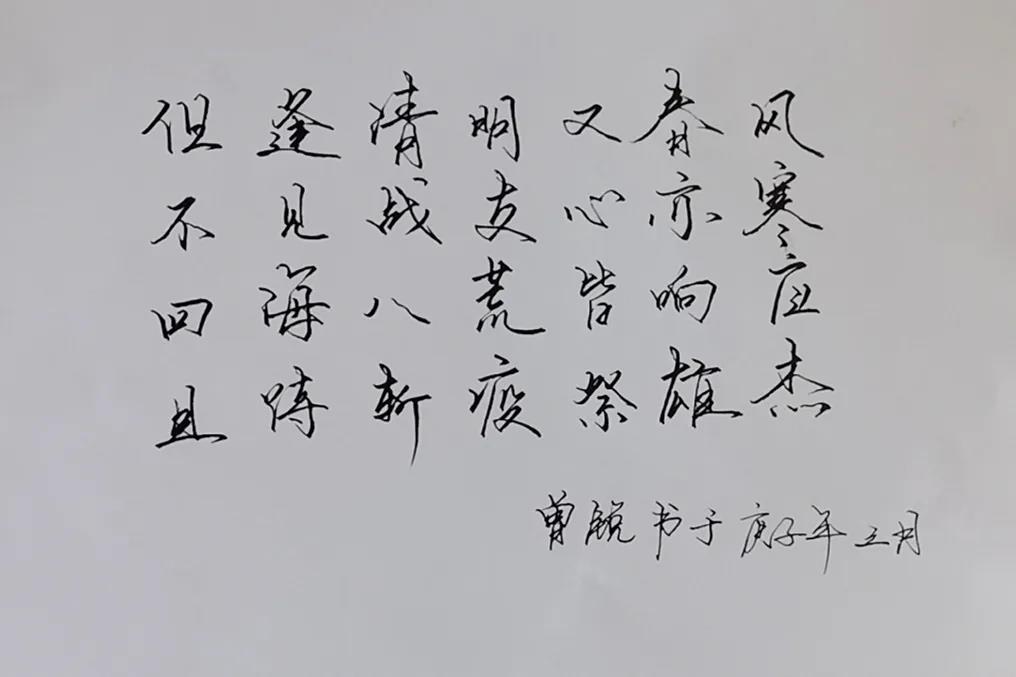 但逢清明又春风
不见战友心亦寒
四海八荒皆响应
且待斩疫祭雄杰
曾锐书于庚子年三月